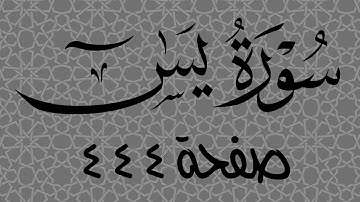 سُورَةُ يسٓ
صفحة ٤٤٤